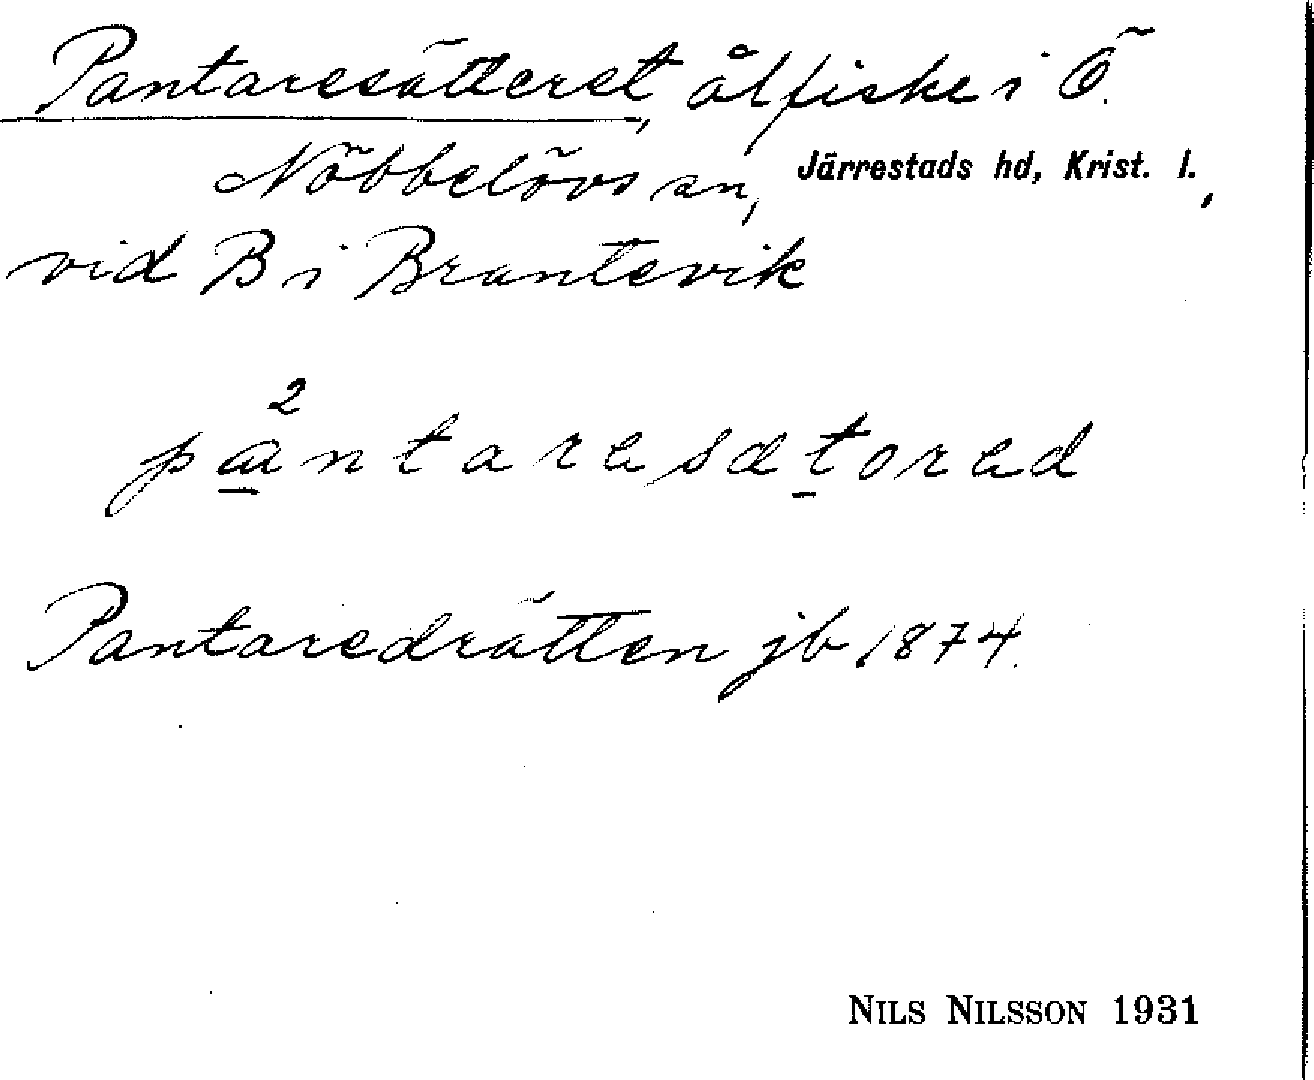 Pantaresätteret, ålfiske i Ö.
Nöbbelövs sn, Järrestads hd, Krist. l.,
vid B i Brantevik
2
pantaresætorad
Pantaredrätten jb 1874.
NILS NILSSON 1931